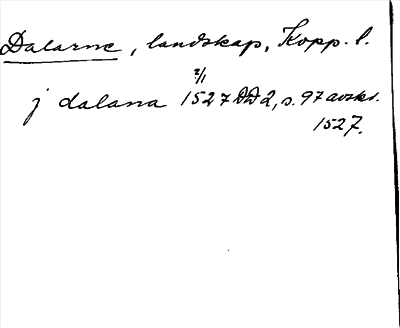 Dalarne, landskap, Kopp. l.
2/1
j dalana 1527 DD2, s. 97 avskr.
1527.